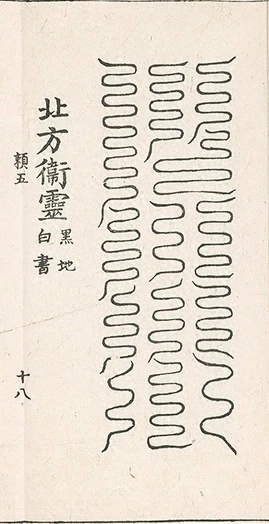 北方衞靈
黒地
白書
類五
十八